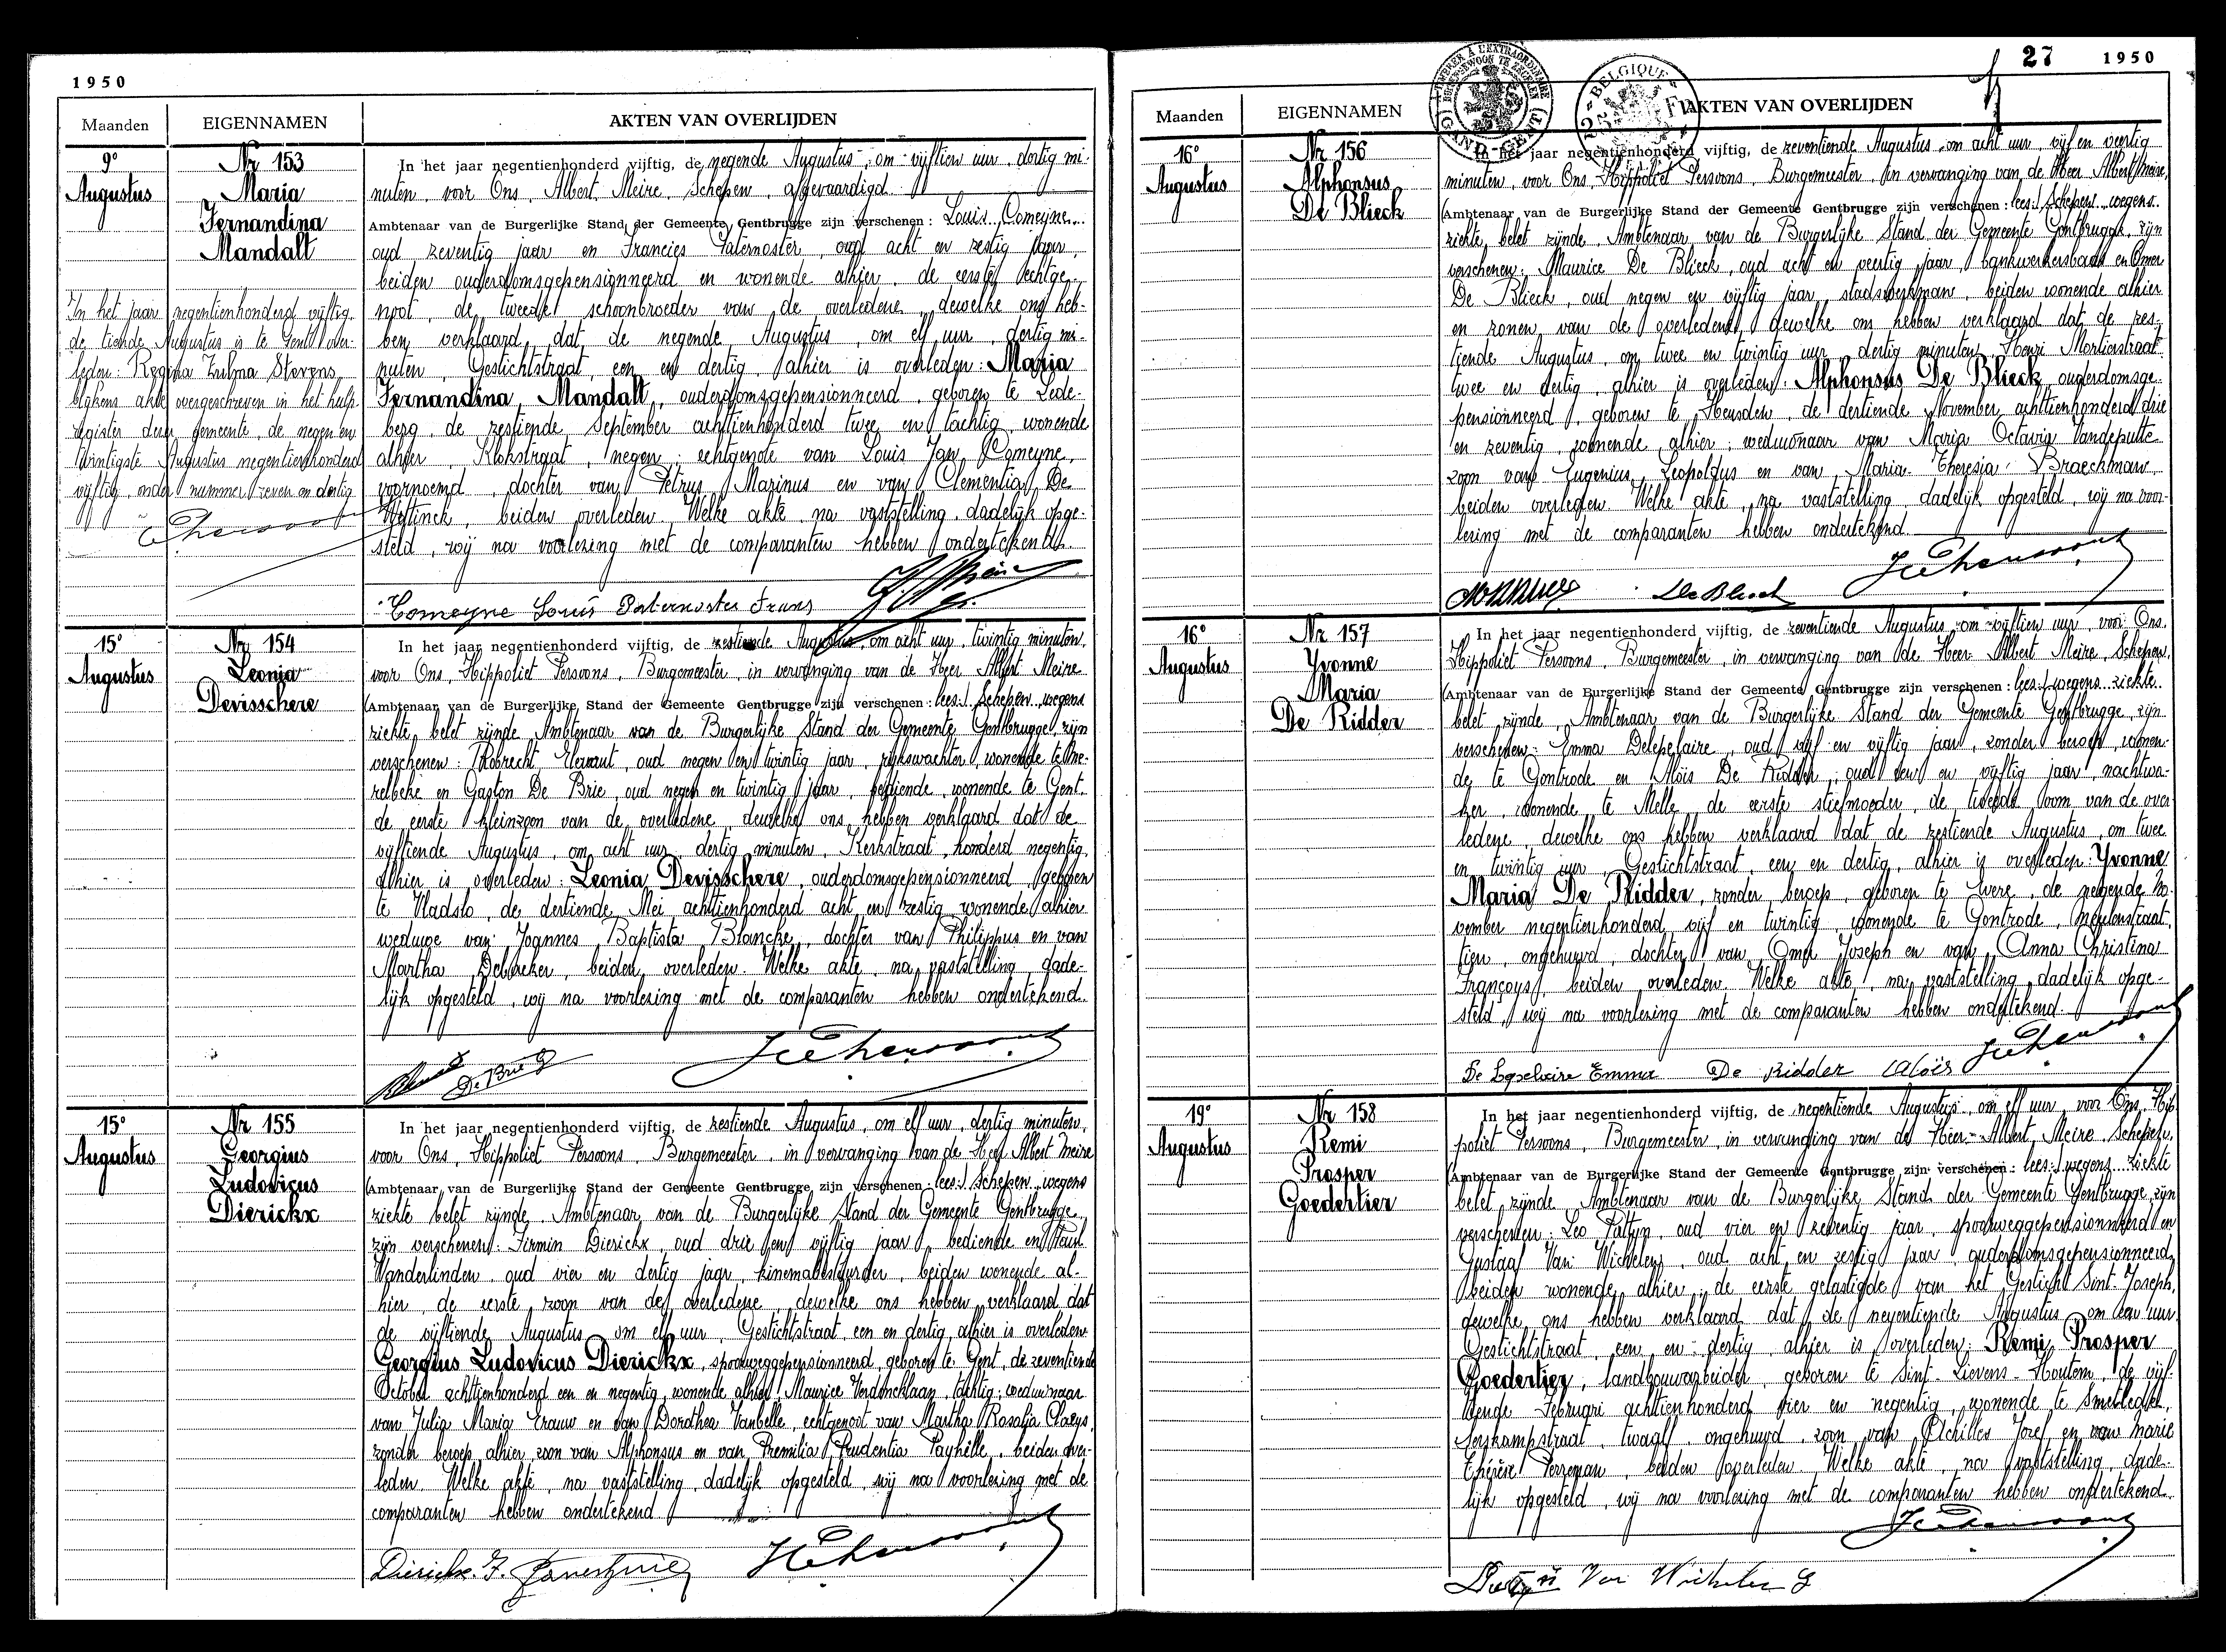 1950
Maanden
EIGENNAMEN
AKTEN VAN OVERLIJDEN
9°
Augustus
Nr 153
Maria
Fernandina
Mandalt
In het jaar negentienhonderd vijftig, de negende Augustus, om vijftien uur, dertig mi-
nuten, voor Ons, Albert Meire, Schepen, afgevaardigd
Ambtenaar van de Burgerlijke Stand der Gemeente Gentbrugge zijn verschenen: Louis Comeyne,
oud zeventig jaar en Francies Paternoster, oud acht en zestig jaar,
beiden ouderdomsgepensionneerd en wonende alhier, de eerste echtge-
noot, de tweede schoonbroeder van de overledene, dewelke ons heb-
ben verklaard dat de negende Augustus, om elf uur, dertig mi-
nuten, Gestichtstraat, een en dertig, alhier is overleden: Maria
Fernandina Mandalt, ouderdomsgepensionneerd, geboren te Lede-
berg, de zestiende September achttienhonderd twee en tachtig, wonende
alhier, Klokstraat, negen; echtgenote van Louis Jan Comeyne,
voornoemd, dochter van Petrus Marinus en van Clementia De
beiden overleden. Welke akte, na vaststelling, dadelijk opge-
steld, wij na voorlezing met de comparanten hebben ondertekend.
Comeyne Louis Paternoster Frans
In het jaar negentienhonderd vijftig,
de tiende Augustus is te Gent over-
leden: Regina Zulma Stevens,
blijkens akte overgeschreven in het hulp-
register dezer gemeente, de negen en
twintigste Augustus negentienhonderd
vijftig, onder nummer zeven en dertig
15°
Augustus
Nr 154
Leonia
Devisschere
In het jaar negentienhonderd vijftig, de zestiende Augustus, om acht uur, twintig minuten,
voor Ons, Hippoliet Persoons, Burgemeester, in vervanging van de Heer Albert Meire
(Ambtenaar van de Burgerlijke Stand der Gemeente Gentbrugge zijn verschenen: lees:) Schepen, wegens
ziekte belet zijnde, Ambtenaar van de Burgerlijke Stand der Gemeente Gentbrugge, zijn
verschenen: Robrecht Elewaut, oud negen en twintig jaar, rijkswachter, wonende te Me-
relbeke en Gaston De Brie, oud negen en twintig jaar, bediende, wonende te Gent,
de eerste kleinzoon van de overledene, dewelke ons hebben verklaard dat de
vijftiende Augustus, om acht uur, dertig minuten, Kerkstraat, honderd negentig,
alhier is overleden: Leonia Devisschere, ouderdomsgepensionneerd, geboren
te Vladslo, de dertiende Mei achttienhonderd acht en zestig, wonende alhier
weduwe van Joannes Baptista Blancke, dochter van Philippus en van
Martha Debacker, beiden overleden. Welke akte, na vaststelling, dade-
lijk opgesteld, wij na voorlezing met de comparanten hebben ondertekend.
De Brie G
15°
Augustus
Nr 155
Georgius
Ludovicus
Dierickx
In het jaar negentienhonderd vijftig, de zestiende Augustus, om elf uur, dertig minuten,
voor Ons, Hippoliet Persoons, Burgemeester, in vervanging van de Heer Albert Meire
(Ambtenaar van de Burgerlijke Stand der Gemeente Gentbrugge zijn verschenen: lees:) Schepen, wegens
ziekte belet zijnde, Ambtenaar van de Burgerlijke Stand der Gemeente Gentbrugge,
zijn verschenen: Firmin Dierickx, oud drie en vijftig jaar, bediende en Paul
Vanderlinden, oud vier en dertig jaar, kinemabestuurder, beiden wonende al-
hier, de eerste zoon van de overledene, dewelke ons hebben verklaard dat
de vijftiende Augustus, om elf uur, Gestichtstraat, een en dertig, alhier is overleden
Georgius Ludovicus Dierickx, spoorweggepensionneerd, geboren te Gent, de zeventiende
October achttienhonderd een en negentig, wonende alhier, Maurice Verdoncklaan, tachtig; weduwnaar
van Julia Maria Erauw en van Dorothea Vanbelle, echtgenoot van Martha Rosalia Claeys,
zonder beroep, alhier, zoon van Alphonsus en van Premilia Prudentia Payhelle, beiden over-
leden. Welke akte, na vaststelling, dadelijk opgesteld, wij na voorlezing met de
comparanten hebben ondertekend
Dierickx F.
27
1950
Maanden
EIGENNAMEN
AKTEN VAN OVERLIJDEN
BELGIQUE
GAND-GENT
16°
Augustus
Nr 156
Alphonsus
De Blieck
In het jaar negentienhonderd vijftig, de zeventiende Augustus, om acht uur, vijf en veertig
minuten, voor Ons, Hippoliet Persoons, Burgemeester, in vervanging van de Heer Albert Meire,
(Ambtenaar van de Burgerlijke Stand der Gemeente Gentbrugge zijn verschenen: lees:) Schepen, wegens
ziekte belet zijnde, Ambtenaar van de Burgerlijke Stand der Gemeente Gentbrugge, zijn
verschenen: Maurice De Blieck, oud acht en veertig jaar, bankwerkersbaas en Omer
De Blieck, oud negen en vijftig jaar, stadswerkman, beiden wonende alhier
en zonen van de overledene, dewelke ons hebben verklaard dat de zes-
tiende Augustus, om twee en twintig uur, dertig minuten, Henri Mortierstraat
twee en dertig, alhier is overleden: Alphonsus De Blieck, ouderdomsge-
pensionneerd, geboren te Heusden, de dertiende November achttienhonderd drie
en zeventig, wonende alhier; weduwnaar van Maria Octavia Vandeputte
zoon van Eugenius Leopoldus en van Maria Theresia Braeckman
beiden overleden. Welke akte, na vaststelling, dadelijk opgesteld, wij na voor-
lezing met de comparanten hebben ondertekend
De Blieck
16°
Augustus
Nr 157
Yvonne
Maria
De Ridder
In het jaar negentienhonderd vijftig, de zeventiende Augustus, om vijftien uur, voor Ons,
Hippoliet Persoons, Burgemeester, in vervanging van de Heer Albert Meire, Schepen,
(Ambtenaar van de Burgerlijke Stand der Gemeente Gentbrugge zijn verschenen: lees:) wegens ziekte
belet zijnde, Ambtenaar van de Burgerlijke Stand der Gemeente Gentbrugge, zijn
verschenen: Emma Delepelaire, oud vijf en vijftig jaar, zonder beroep, wonen-
de te Gontrode en Aloïs De Ridder, oud een en vijftig jaar, nachtwa-
ker, wonende te Melle, de eerste stiefmoeder, de tweede oom van de over-
ledene, dewelke ons hebben verklaard dat de zestiende Augustus, om twee
en twintig uur, Gestichtstraat, een en dertig, alhier is overleden: Yvonne
Maria De Ridder, zonder beroep, geboren te Evere, de negende No-
vember negentienhonderd vijf en twintig, wonende te Gontrode, Meulenstraat,
tien, ongehuwd, dochter van Omer Joseph en van Anna Christina
Françoys, beiden overleden. Welke akte, na vaststelling, dadelijk opge-
steld, wij na voorlezing met de comparanten hebben ondertekend.
De Lepelaire Emma De Ridder Aloïs
19°
Augustus
Nr 158
Remi
Prosper
Goedertier
In het jaar negentienhonderd vijftig, de negentiende Augustus, om elf uur, voor Ons, Hip-
poliet Persoons, Burgemeester, in vervanging van de Heer Albert Meire, Schepen,
(Ambtenaar van de Burgerlijke Stand der Gemeente Gentbrugge zijn verschenen: lees:) wegens ziekte
belet zijnde, Ambtenaar van de Burgerlijke Stand der Gemeente Gentbrugge, zijn
verschenen: Leo Paltyn, oud vier en zeventig jaar, spoorweggepensionneerd en
Gustaaf Van Wichelen, oud acht en zestig jaar, ouderdomsgepensionneerd,
beiden wonende alhier, de eerste gelastigde van het Gesticht Sint-Joseph,
dewelke ons hebben verklaard dat de negentiende Augustus, om een uur,
Gestichtstraat, een en dertig, alhier is overleden: Remi Prosper
Goedertier, landbouwarbeider, geboren te Sint-Lievens-Houtem, de vijf-
tiende Februari achttienhonderd vier en negentig, wonende te Smetlede,
twaalf, ongehuwd, zoon van Achilles Jozef en van Marie
Thérèse beiden overleden. Welke akte, na vaststelling, dade-
lijk opgesteld, wij na voorlezing met de comparanten hebben ondertekend.
Van Wichelen G